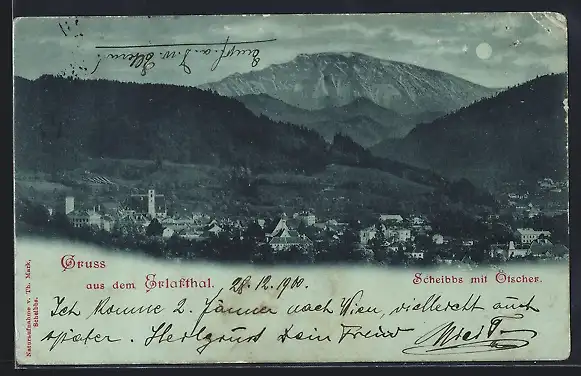 Empf. a. J. w. Eltern!
Gruss
aus dem Erlafthal. 28.12.1900.
Scheibbs mit Ötscher.
Ich komme 2. Jänner nach Wien, vielleicht auch
später. Herzl. Gruß Dein Freund
Naturaufnahme v. Th. Mark,
Scheibbs.